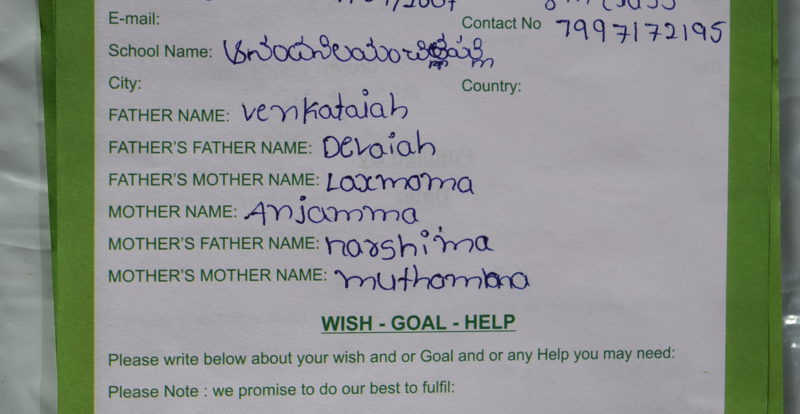 E-mail: Contact No 7997172195
School Name:
City: Country:
FATHER NAME: venkataiah
FATHER'S FATHER NAME: Devaiah
FATHER'S MOTHER NAME: Laxmoma
MOTHER NAME: Anjamma
MOTHER'S FATHER NAME: narshima
MOTHER'S MOTHER NAME:
WISH - GOAL - HELP
Please write below about your wish and or Goal and or any Help you may need:
Please Note : we promise to do our best to fulfil: